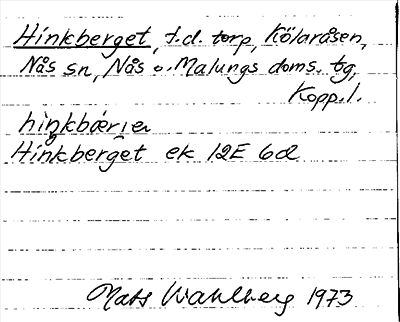 Hinkberget, f.d. torp, Kölaråsen,
Nås sn, Nås o. Malungs doms. tg,
Kopp. l.
Hinkberget ek 12E 6d
Mats Wahlberg 1973